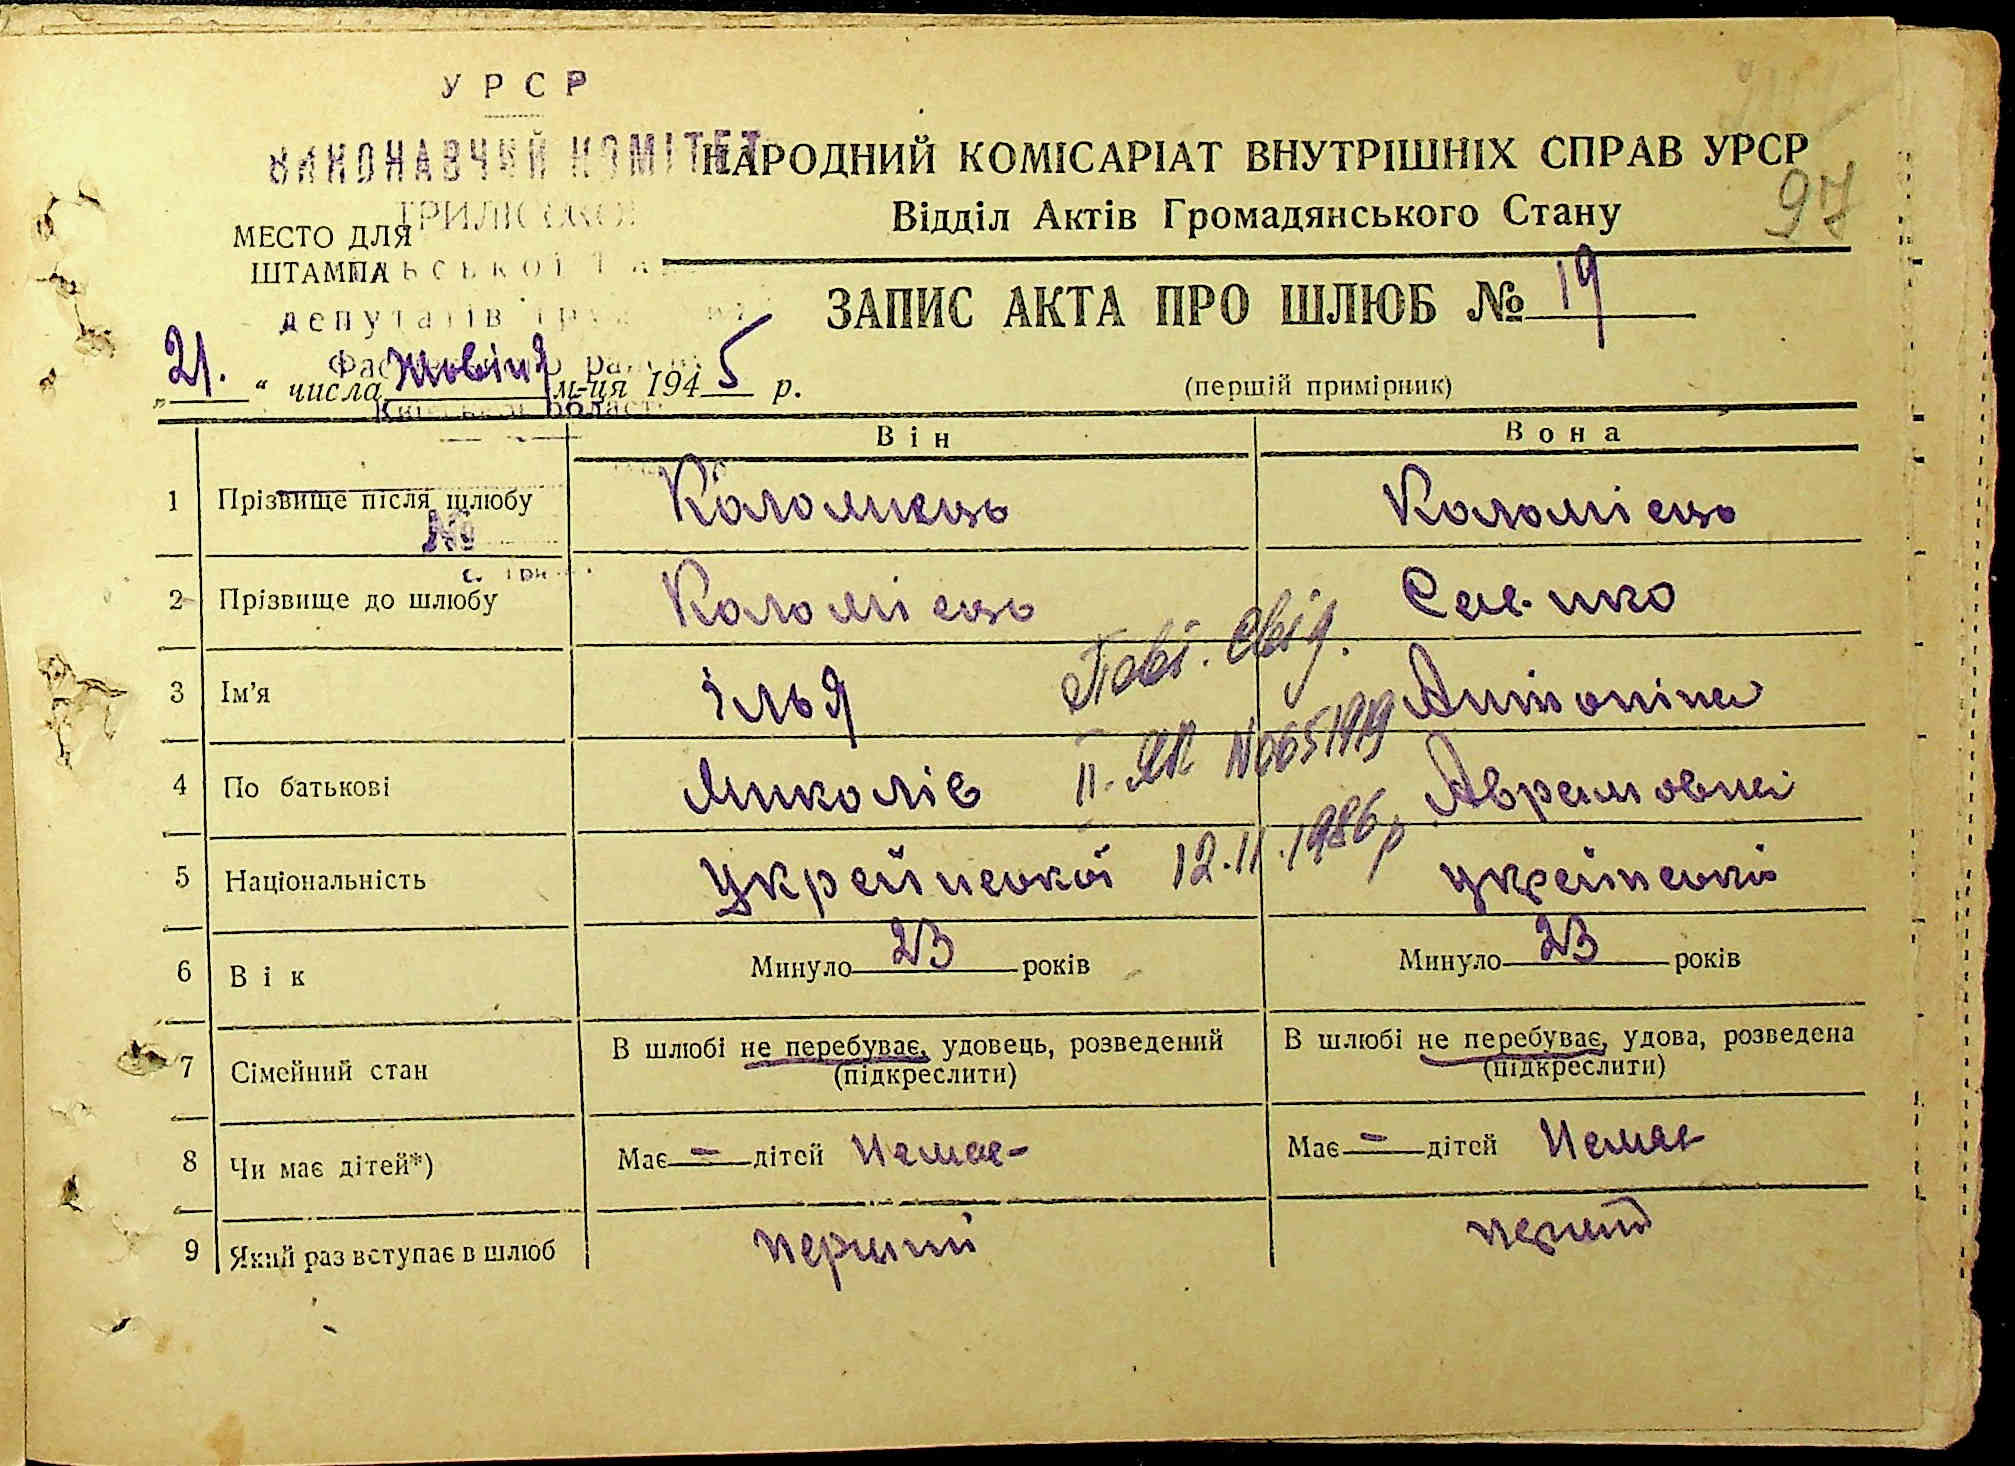 УРСР
ВИКОНАВЧИЙ КОМІТЕТ
ТРИЛІСЬКОЇ
депутатів
області
МЕСТО ДЛЯ
ШТАМПА
НАРОДНИЙ КОМІСАРІАТ ВНУТРІШНІХ СПРАВ УРСР
97
Відділ Актів Громадянського Стану
ЗАПИС АКТА ПРО ШЛЮБ № 19
„21.“ числа жовтня м-ця 1945 р.
(перший примірник)
Він Вона
1 Прізвище після шлюбу Коломиець Коломієць
№
2 Прізвище до шлюбу Коломієць
3 Ім'я Ілья Антоніна
4 По батькові Миколаїв Аврамовна
Повт. свід.
II-
12.11.1986 р
5 Національність української українська
6 Вік Минуло 23 років Минуло 23 років
7 Сімейний стан В шлюбі не перебуває, удовець, розведений В шлюбі не перебуває, удова, розведена
(підкреслити) (підкреслити)
8 Чи має дітей*) Має - дітей Немає - Має - дітей Немає
9 Який раз вступає в шлюб перший перший